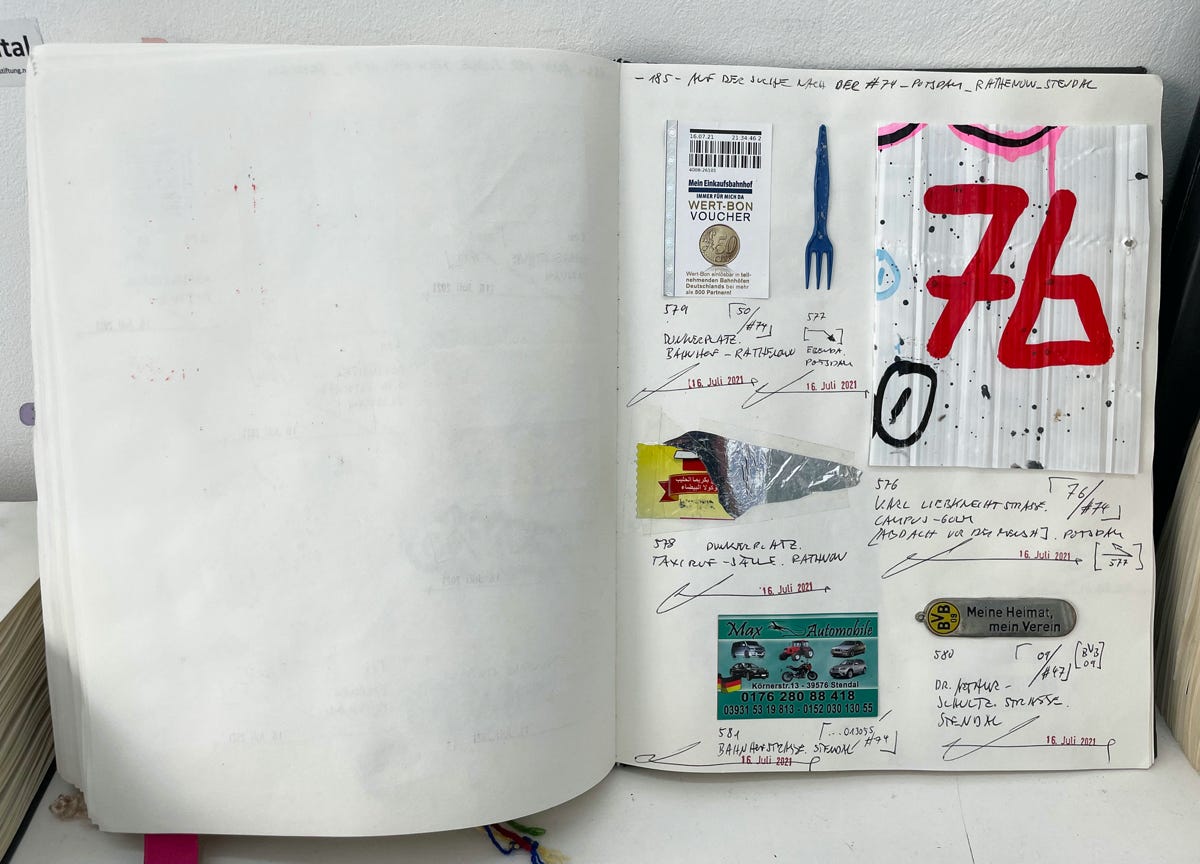 tal
stiftung.n
-185- AUF DER SUCHE NACH DER #74_POTSDAM_RATHENOW_STENDAL
16.07.21 21:34 46 2
4008-26101
Mein Einkaufsbahnhof
IMMER FÜR MICH DA
WERT-BON
VOUCHER
50
Wert-Bon einlösbar in teil-
nehmenden Bahnhöfen
Deutschlands bei mehr
als 500 Partnern!
579 [50/#74]
DUNKERPLATZ.
BAHNHOF - RATHENOW
16. Juli 2021
577
EBENDA.
POTSDAM
16. Juli 2021
76
576 [76/#74]
KARL LIEBKNECHTSTRASSE.
CAMPUS-GOLM
POTSDAM
16. Juli 2021
[577]
بكريما الحليب
وكولا البيضاء
578 DUNKERPLATZ.
TAXIRUF-SÄULE. RATHNOW
16. Juli 2021
BVB 09
Meine Heimat,
mein Verein
580 [09/#47] [BVB 09]
DR. ARTHUR-
SCHULTZ STRASSE.
STENDAL
16. Juli 2021
Max Automobile
Körnerstr.13 - 39576 Stendal
0176 280 88 418
03931 53 19 813 - 0152 030 130 55
581 [...013055/#74]
BAHNHOFSTRASSE. STENDAL
16. Juli 2021